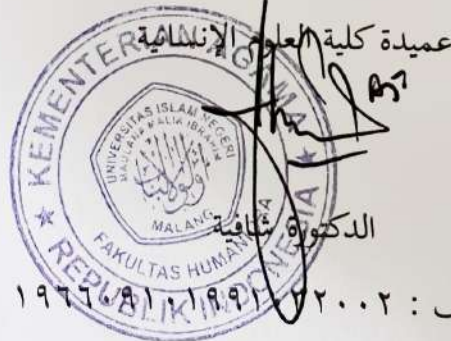 عميدة كلية العلوم الإنسانية
KEMENTERIAN AGAMA
UNIVERSITAS ISLAM NEGERI
MAULANA MALIK IBRAHIM
MALANG
FAKULTAS HUMANIORA
REPUBLIK INDONESIA
الدكتورة شافية
: ١٩٦٦٠٩١٠١٩٩١٠٣٢٠٠٢